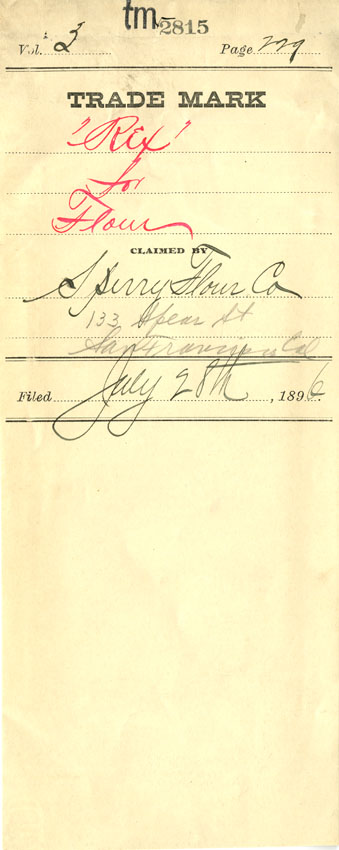 tm-2815
Vol. 3 Page 229
TRADE MARK
'Rex'
for
Flour
CLAIMED BY
Sperry Flour Co
133 Spear St
San Francisco Cal
Filed July 28th, 1896.